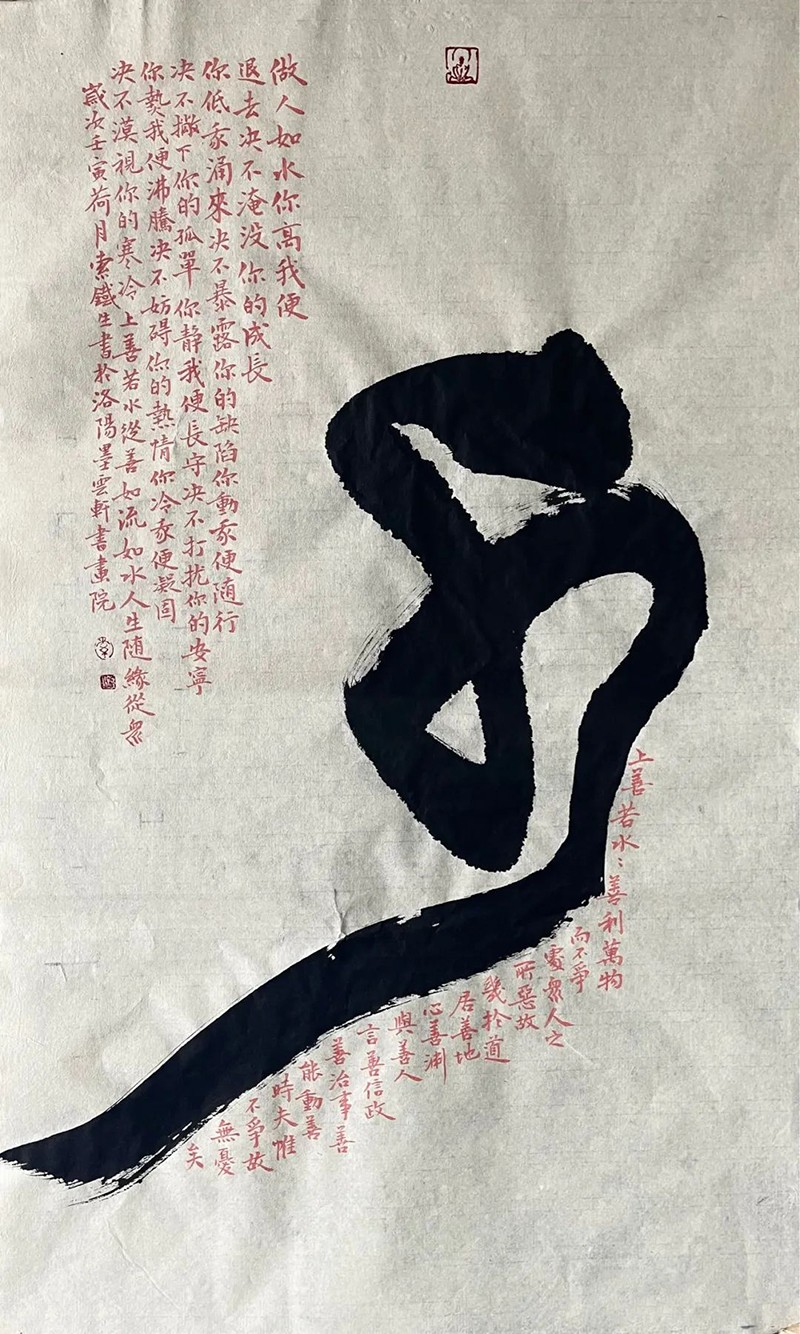 做人如水你高我便
退去决不淹没你的成長
你低我涌來决不暴露你的缺陷你動我便随行
决不撇下你的孤單你静我便長守决不打扰你的安寧
你熱我便沸騰决不妨碍你的熱情你冷我便凝固
决不漠視你的寒冷上善若水從善如流如水人生随緣從衆
歲次壬寅荷月索鐵生書於洛陽墨雲軒書畫院
上善若水：善利萬物
而不爭
處衆人之
所惡故
幾於道
居善地
心善渊
與善人
言善信政
善治事善
能動善
時夫惟
不爭故
無憂
矣